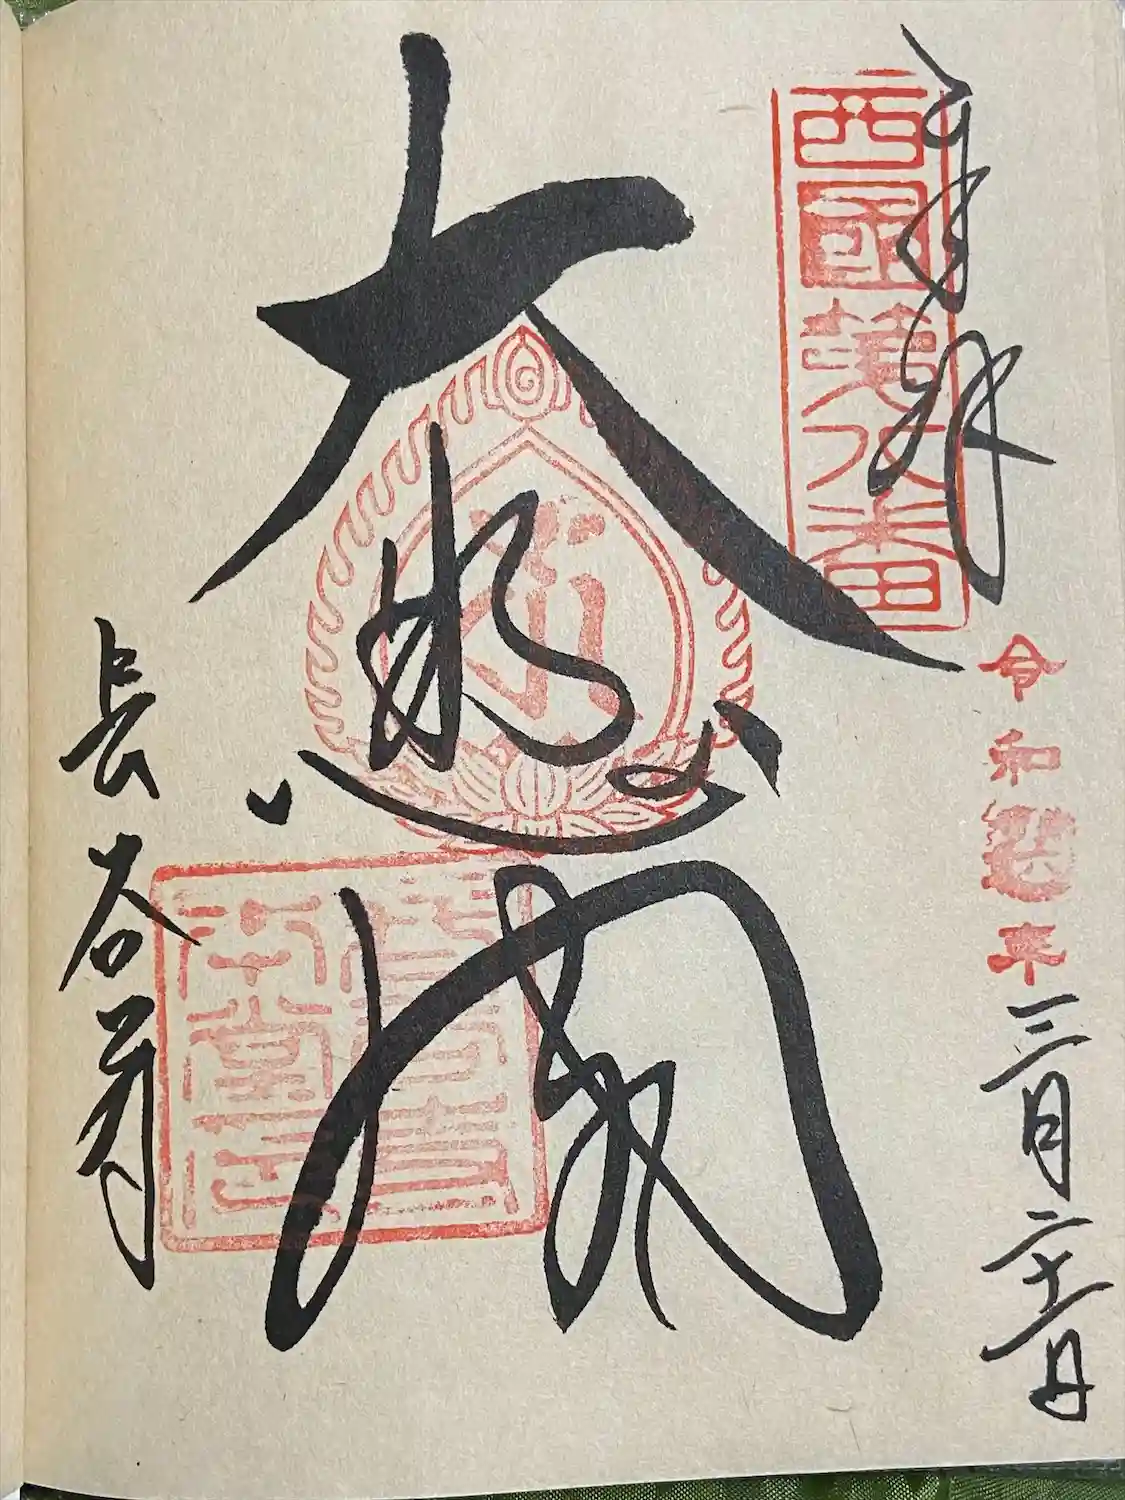 奉拝
西國第八番
令和 年
三月二十二日
大悲閣
長谷寺